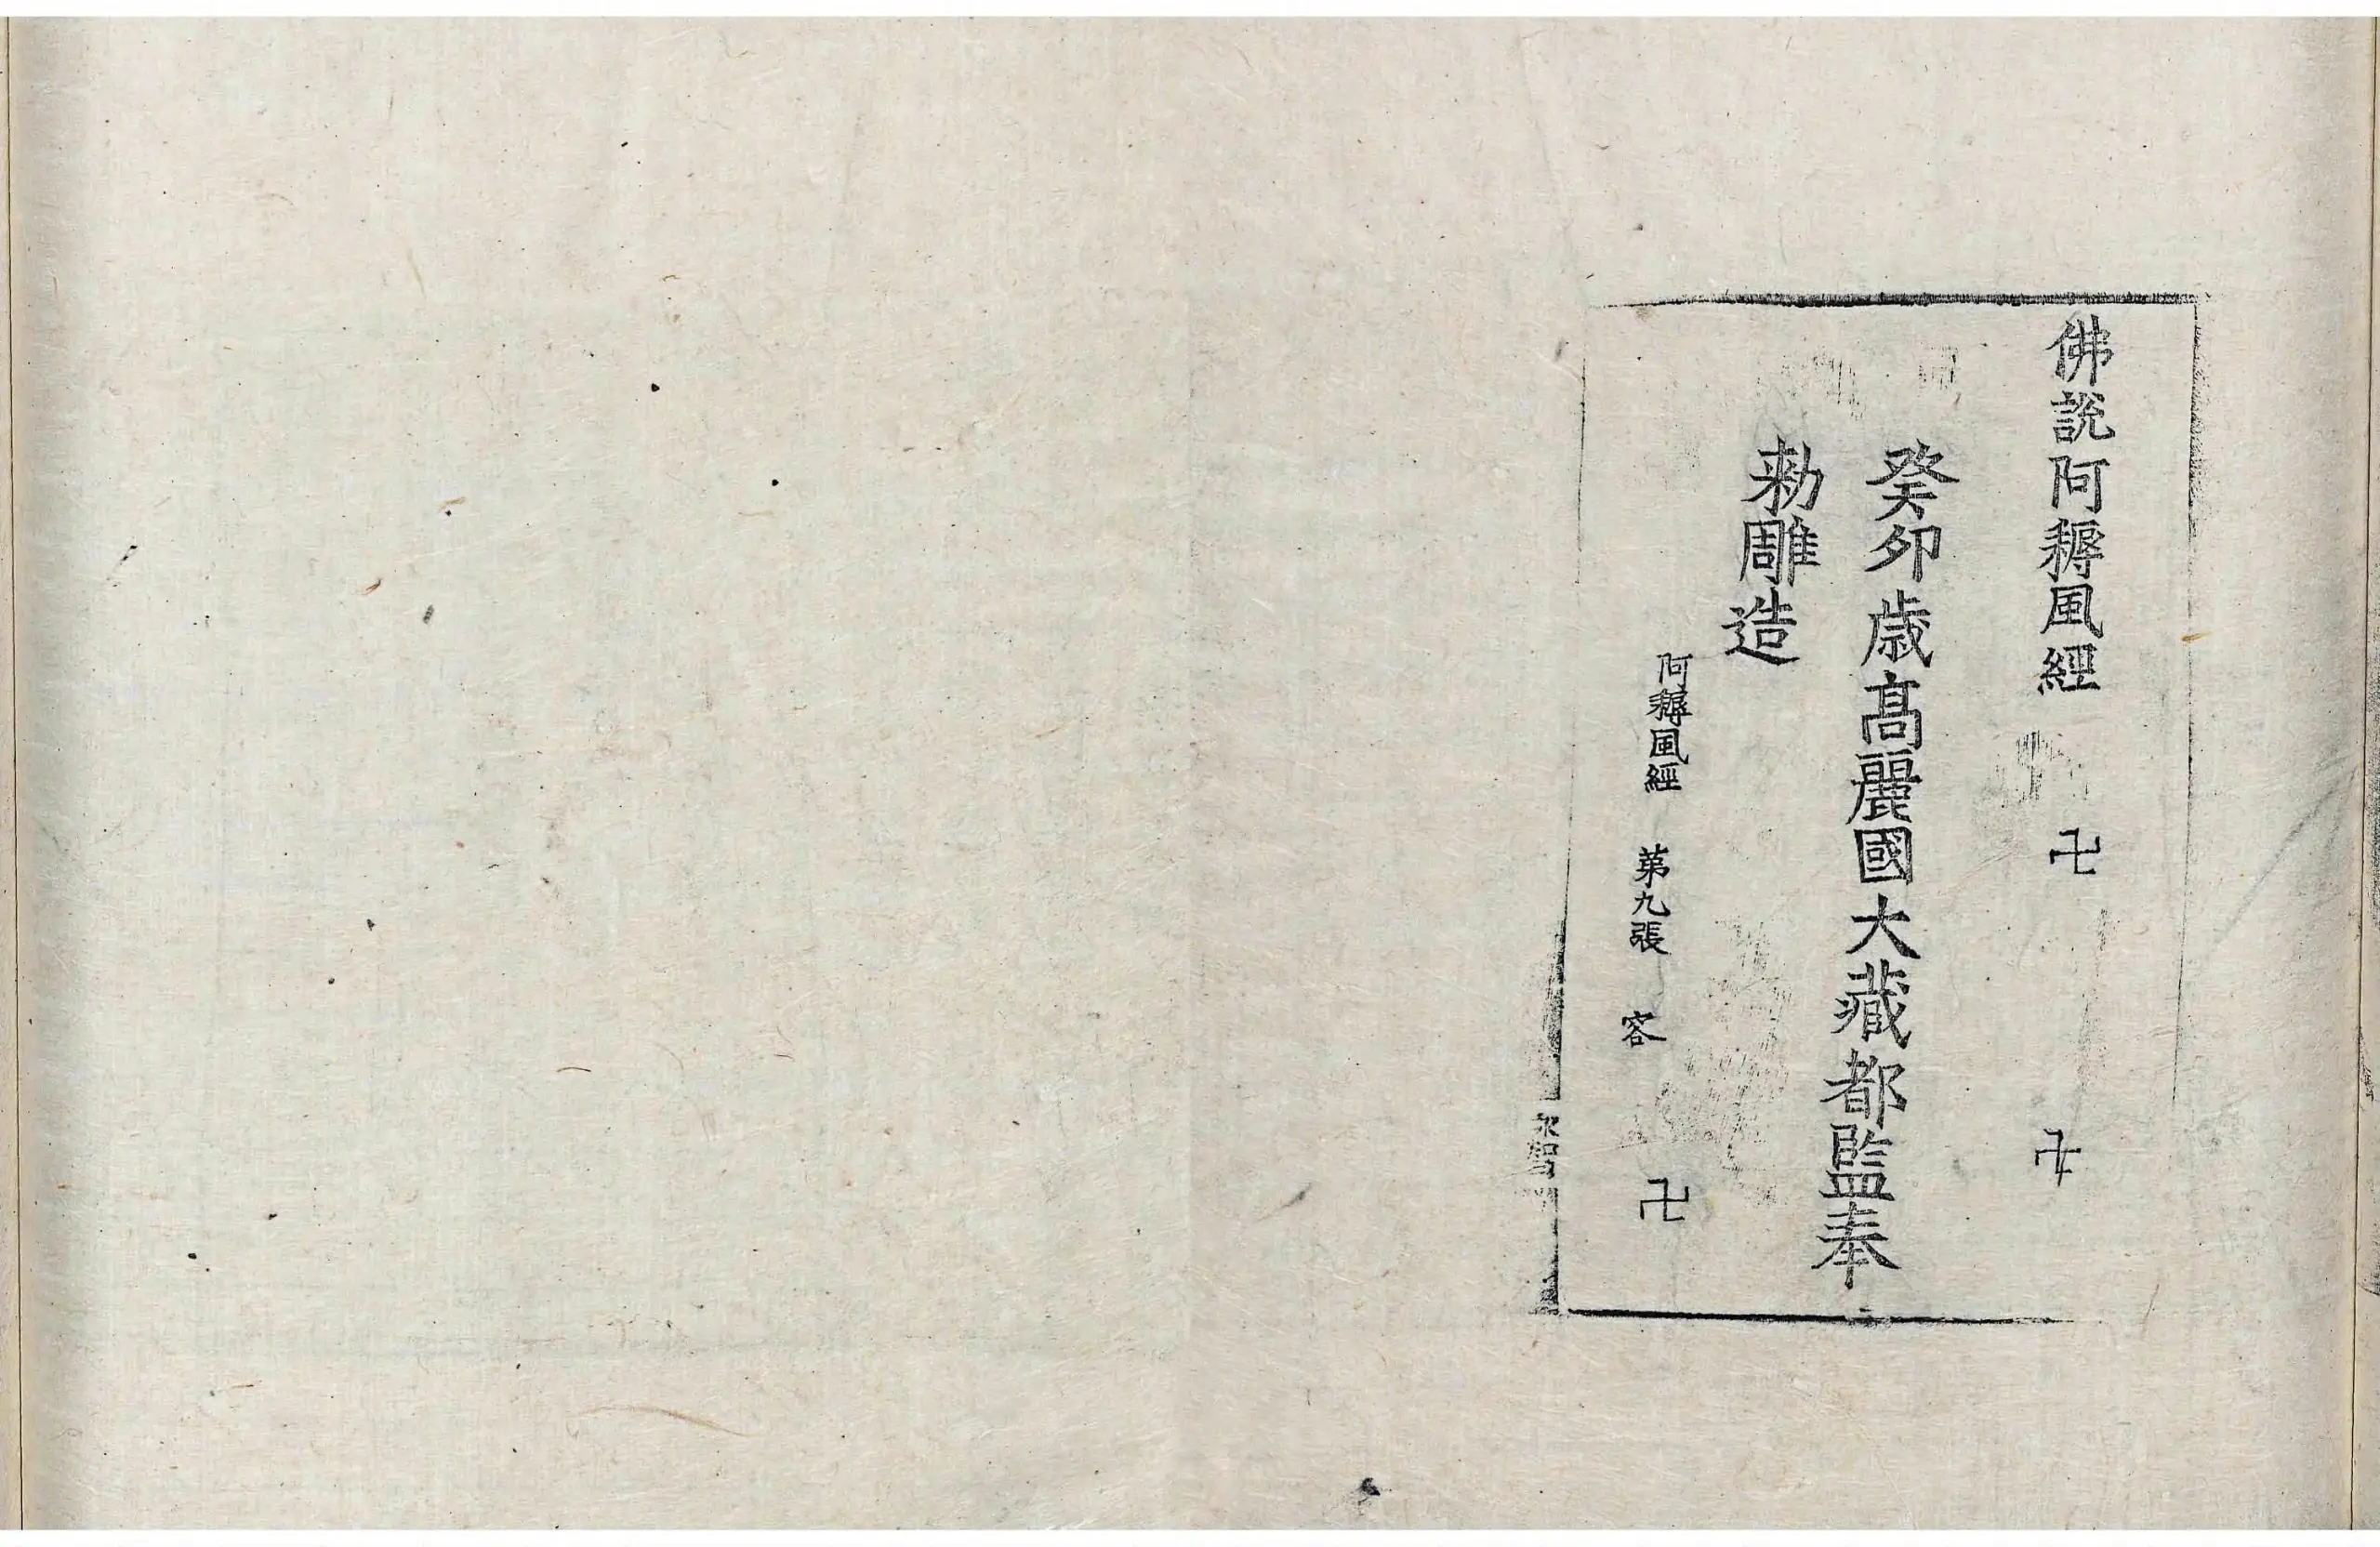 佛說阿耨風經 卍 卍
癸卯歲高麗國大藏都監奉
勅雕造
阿耨風經 第九張 容 卍